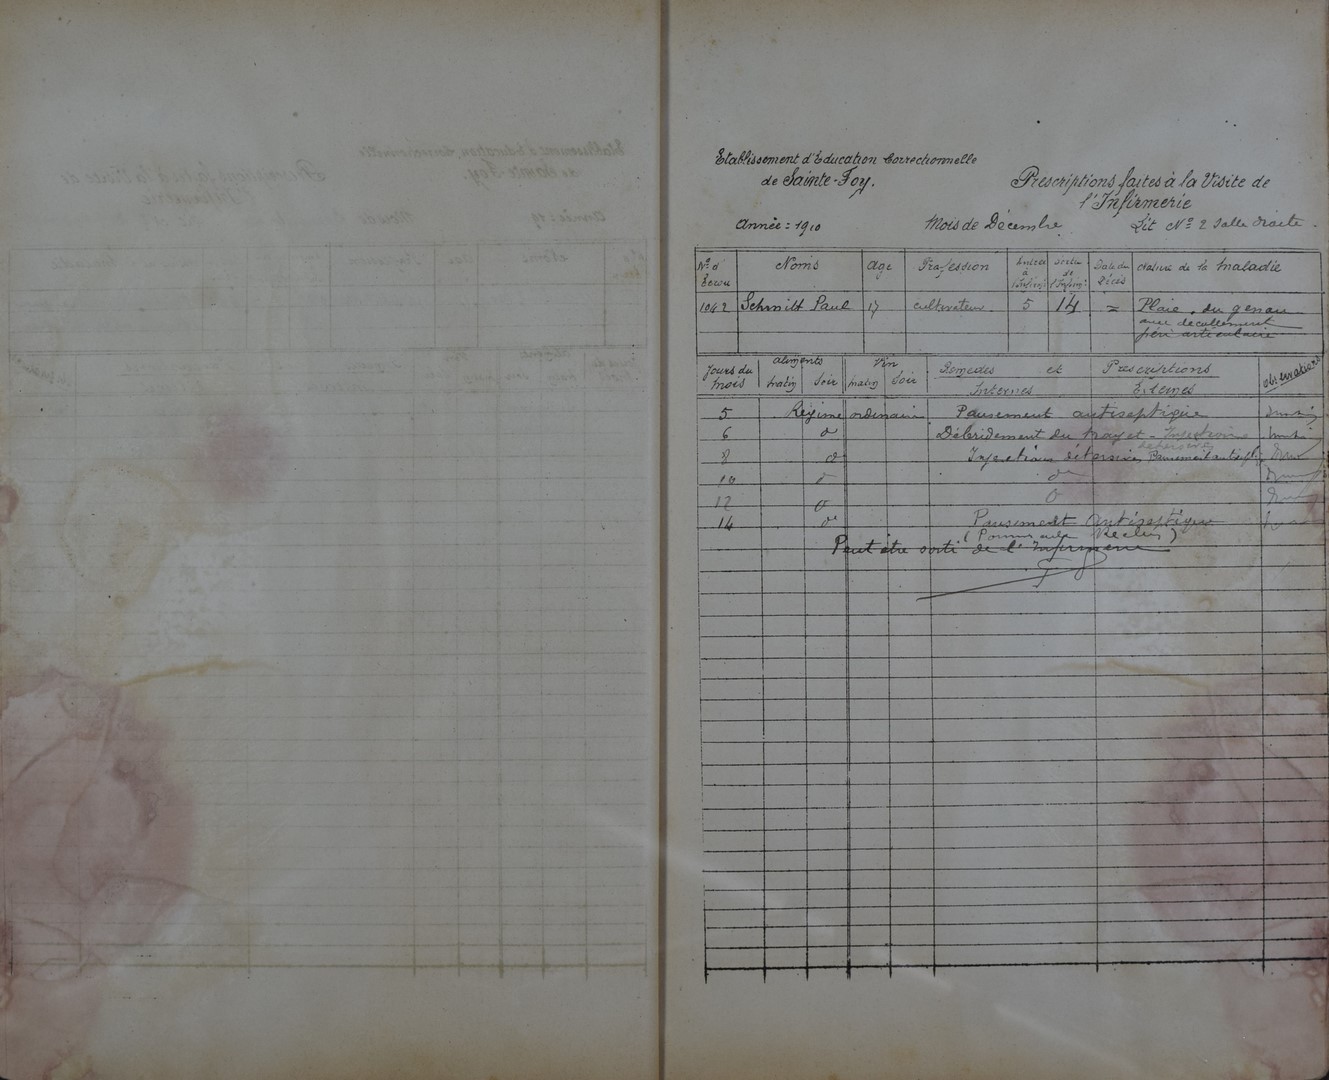 Etablissement d'Education Correctionnelle
de Sainte-Foy.
Prescriptions faites à la Visite de
l'Infirmerie
Année : 1910
Mois de Décembre
Lit Nº 2 Salle droite.
Nº d' Ecrou
Noms
Age
Profession
Entrée à l'Infirm:
Sortie de l'Infirm:
Date du Décès
Nature de la Maladie
1042 Schmitt Paul 17 cultivateur 5 14 = Plaie du genou
avec decollement
péri articulaire
Jours du mois
aliments
matin
Soir
Vin
matin
Soir
Remèdes et Prescriptions
Internes
Externes
Observations
5 Régime ordinaire Pansement antiseptique
6 dº Débridement du trajet - Injections
détersives
8 dº Injections détersives, Pansement antisept.
10 dº dº
12 dº dº
14 dº Pansement antiseptique
(Pommade Reclus)
Peut être sorti de l'Infirmerie